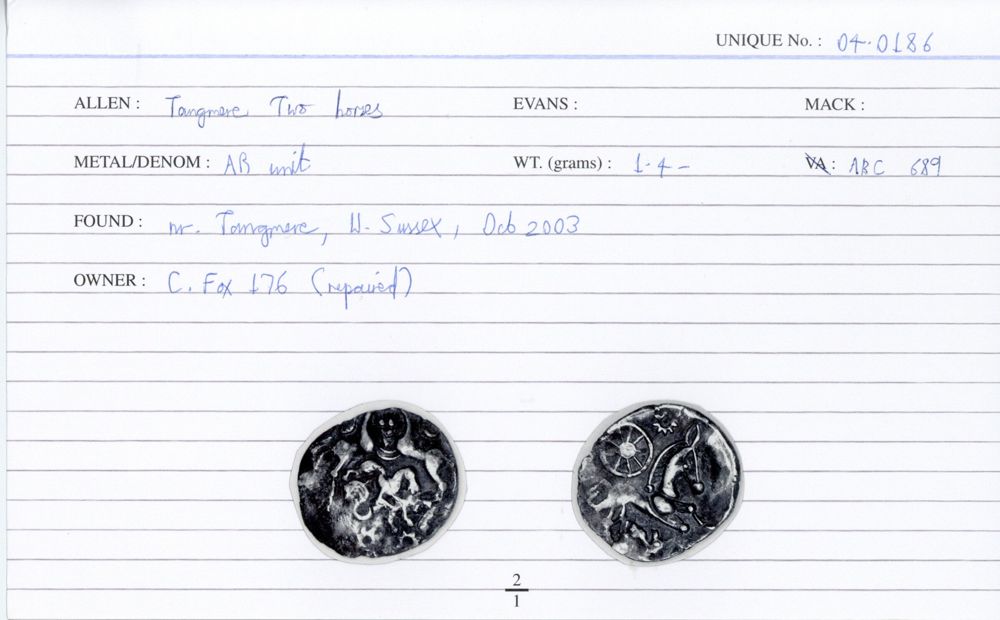 UNIQUE No. : 04-0186
ALLEN : Tangmere Two horses EVANS : MACK :
METAL/DENOM : AR unit WT. (grams) : 1.4- VA : ABC 689
FOUND : nr. Tangmere, W. Sussex, Oct 2003
OWNER : C. Fox 176 (repaired)
2
1